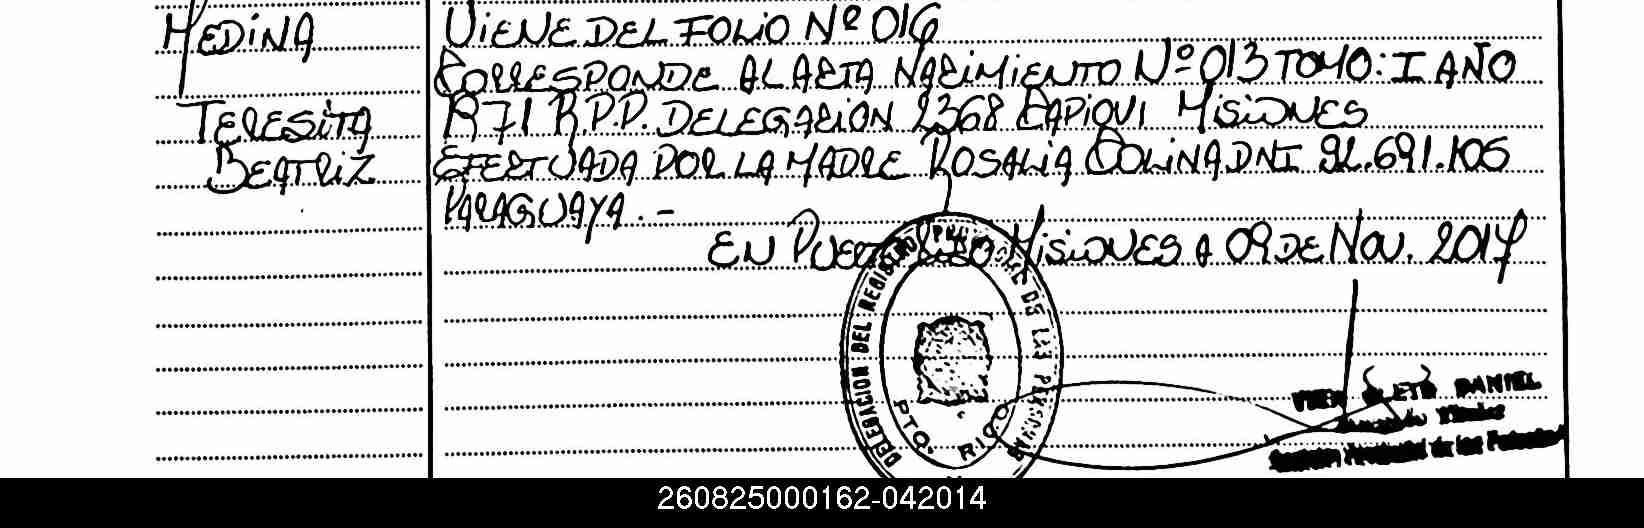 MEDINA
TERESITA
BEATRIZ
VIENE DEL FOLIO Nº 016
CORRESPONDE AL ACTA NACIMIENTO Nº 013 TOMO: I AÑO
1971 R.P.P. DELEGACION 2368 CAPIOVI MISIONES
EFECTUADA POR LA MADRE ROSALIA COLINA DNI 92.691.105
PARAGUAYA.-
EN PUERTO RICO MISIONES A 09 DE NOV. 2017
DELEGACION DEL REGISTRO DE LAS PERSONAS
PTO. RICO
DANIEL
de las
260825000162-042014